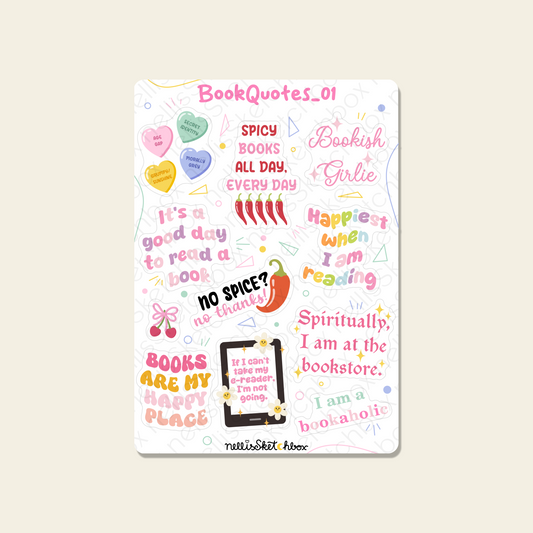 BookQuotes_01
AGE
GAP
SECRET
IDENTITY
MORALLY
GREY
SPICY
BOOKS
ALL DAY,
EVERY DAY
Bookish
Girlie
It's a
good day
to read a
book
Happiest
when
I am
reading
NO SPICE?
no thanks!
Spiritually,
I am at the
bookstore.
BOOKS
ARE MY
HAPPY
PLACE
If I can't
take my
e-reader,
I'm not
going.
I am a
bookaholic
nellissketchbox